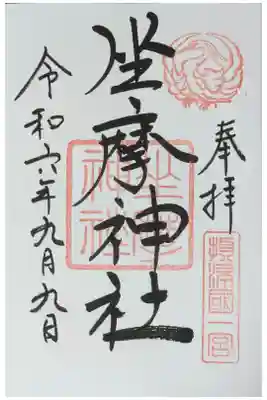 奉拝
摂津国一宮
坐摩神社
令和六年九月九日